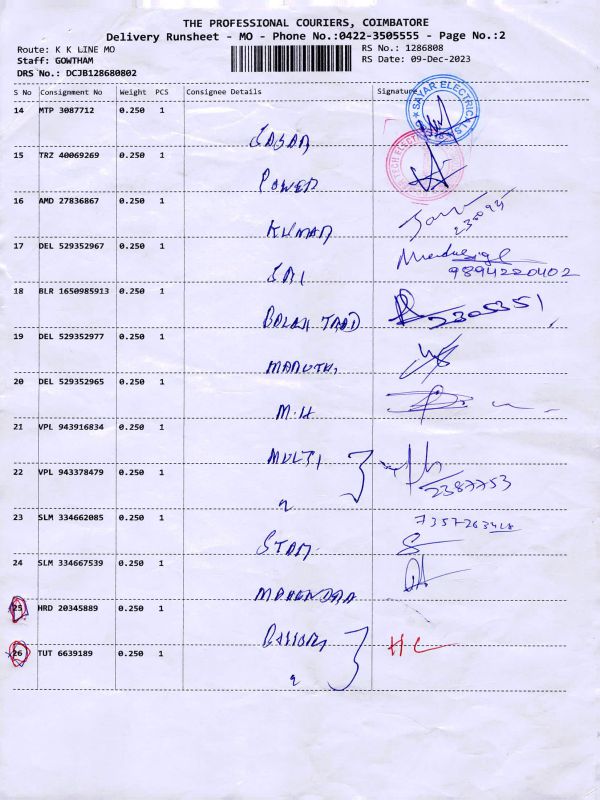 THE PROFESSIONAL COURIERS, COIMBATORE
Delivery Runsheet - MO - Phone No.:0422-3505555 - Page No.:2
Route: K K LINE MO
Staff: GOWTHAM
DRS No.: DCJB128680802
RS No.: 1286808
RS Date: 09-Dec-2023
S No Consignment No Weight PCS Consignee Details Signature
14 MTP 3087712 0.250 1
SAYAR ELECTRICALS
15 TRZ 40069269 0.250 1
POWER
16 AMD 27836867 0.250 1
KUMAR
17 DEL 529352967 0.250 1
SRI
9894220402
18 BLR 1650985913 0.250 1
BALAJI TRAD
2305351
19 DEL 529352977 0.250 1
MARUTHI
20 DEL 529352965 0.250 1
M.H
21 VPL 943916834 0.250 1
MULTI
22 VPL 943378479 0.250 1
2387753
23 SLM 334662085 0.250 1
STAR
24 SLM 334667539 0.250 1
MAHENDRA
25 HRD 20345889 0.250 1
26 TUT 6639189 0.250 1